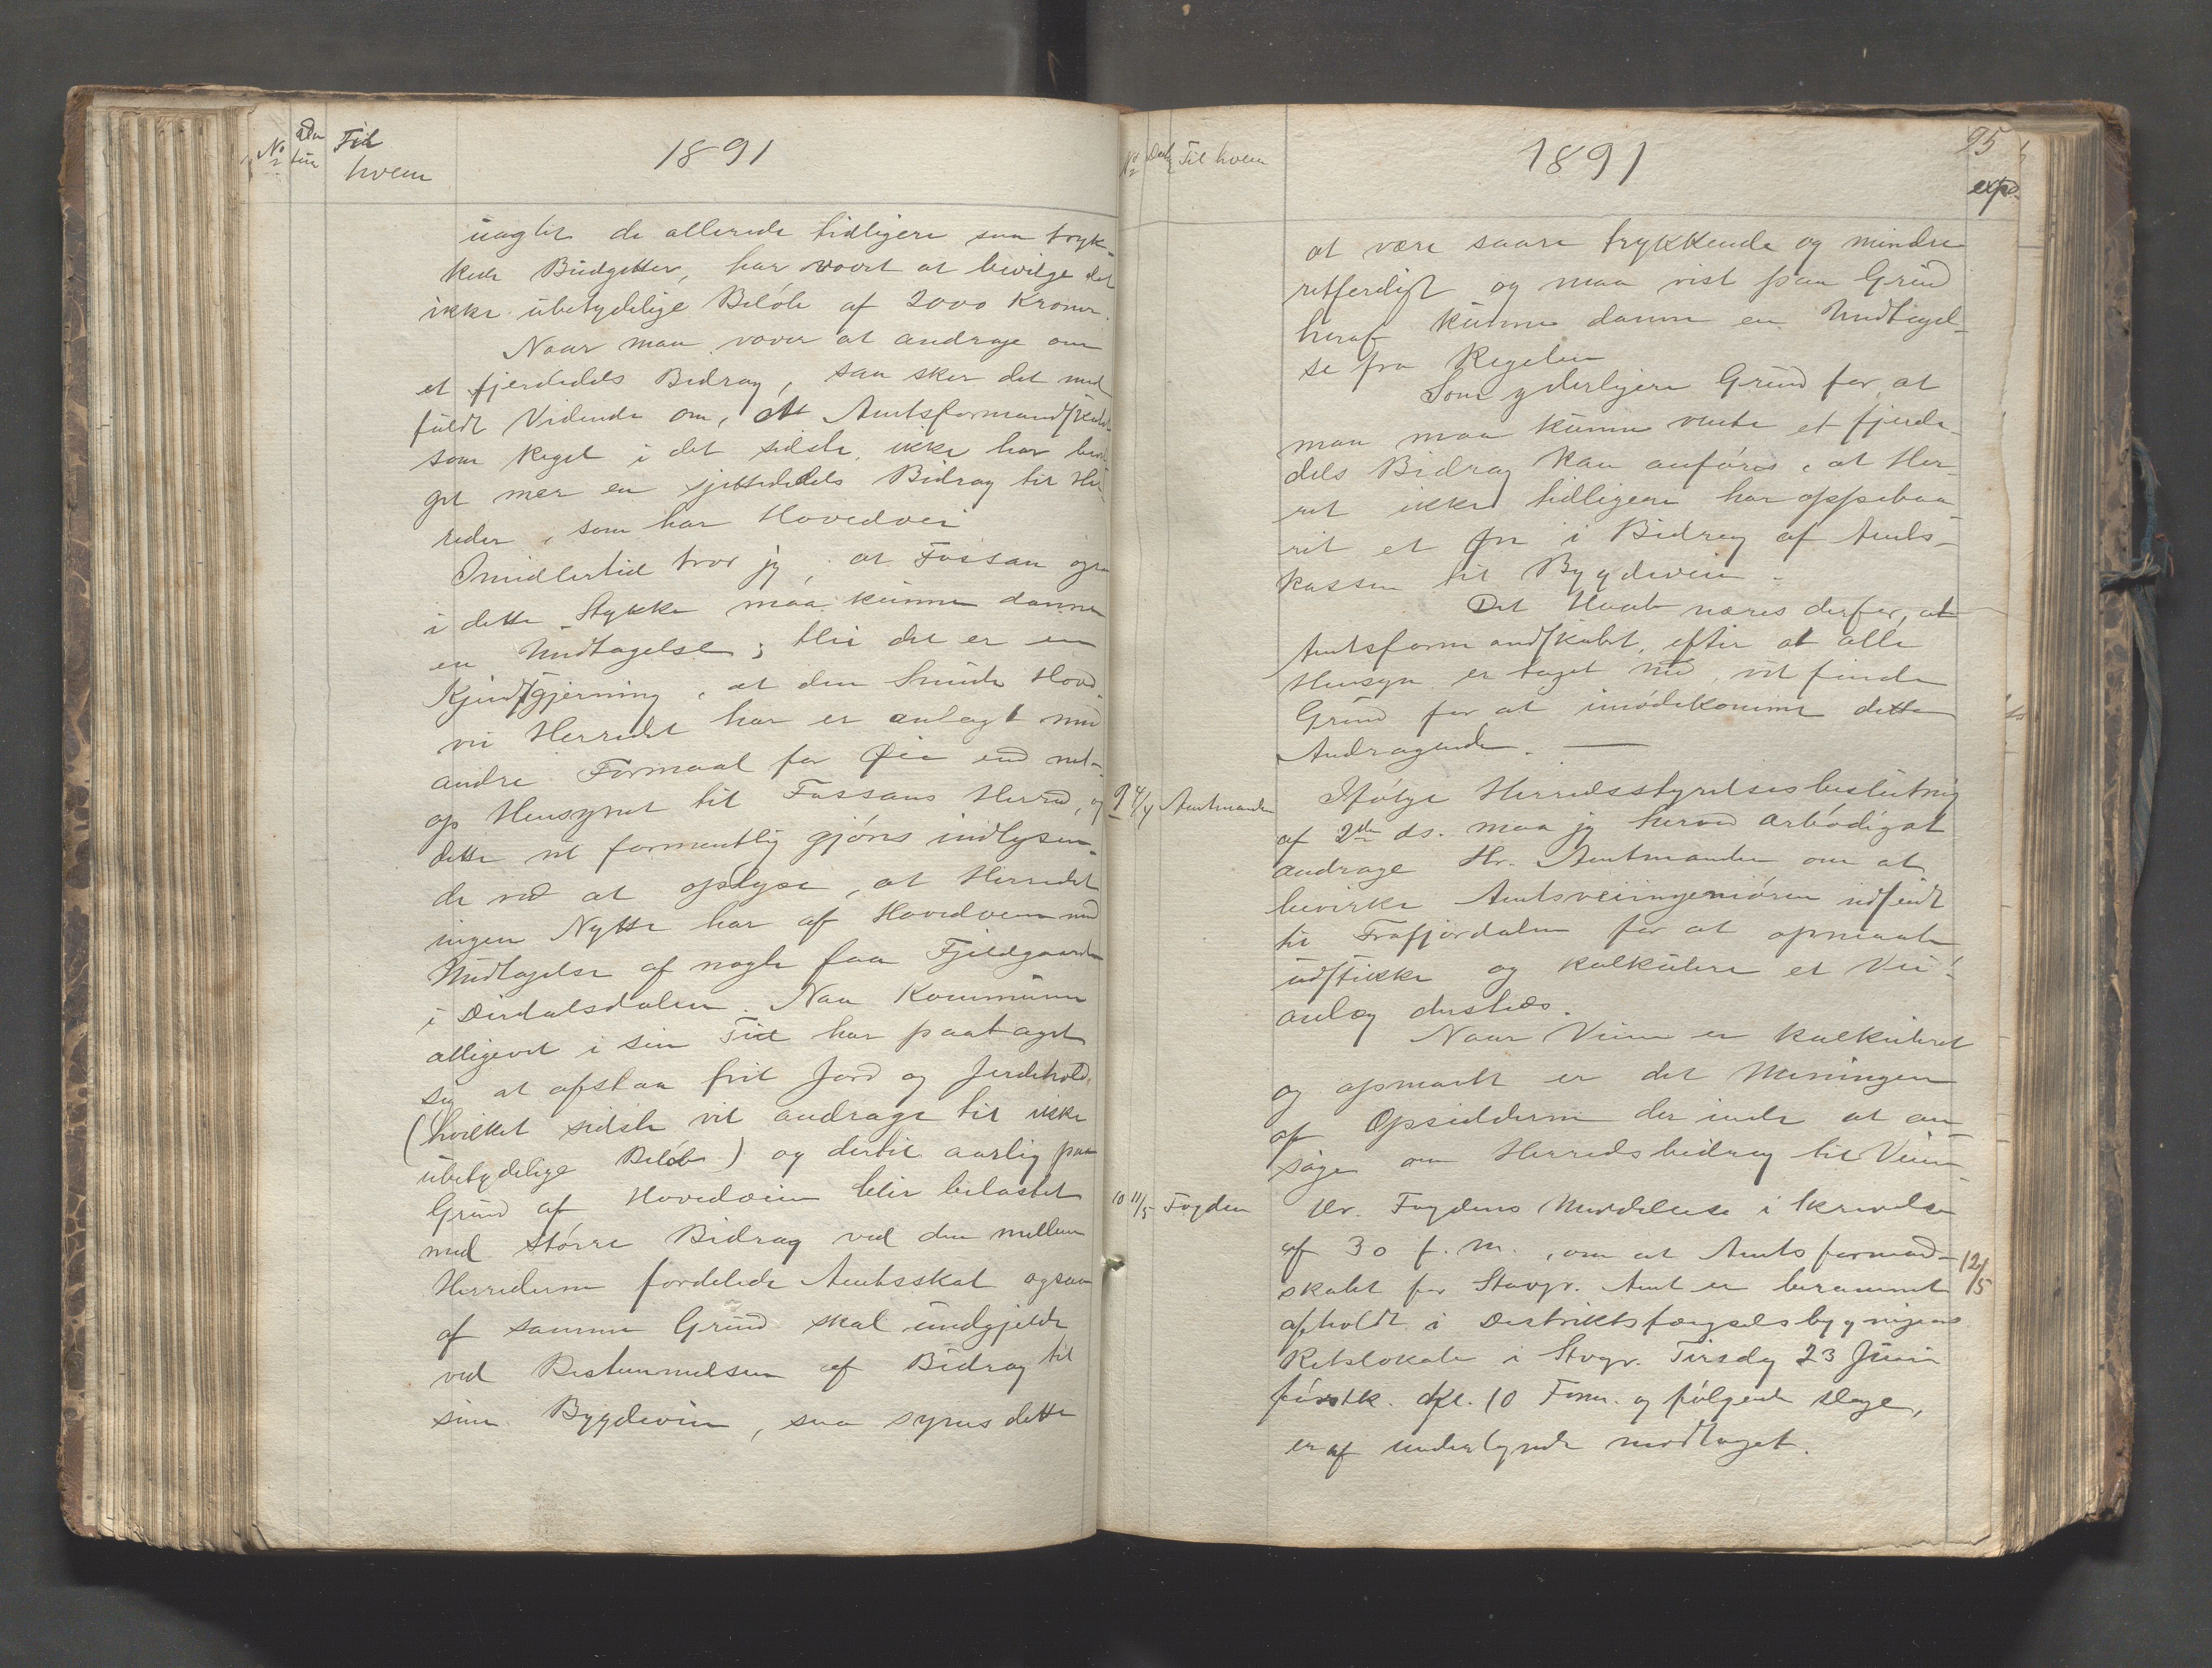 No Datum Til hvem 1891
uagtet de allerede tidligere saa tryk-
kede Budgetter, har vovet at bevilge det
ikke ubetydelige Beløb af 2000 Kroner.
Naar man vover at andrage om
et fjerdedels Bidrag, saa sker det med
fuldt Vidende om, at Amtsformandskabet
som Regel i det sidste, ikke har bevil-
get mer en sjettedels Bidrag til Her-
reder, som har Hovedvei
Imidlertid tror jeg, at Fossan ogsaa
i dette Stykke maa kunne danne
en Undtagelse; thi det er en
Kjendsgjerning, at den Smule Hoved-
vei Herredet har er anlagt med
andre Formaal for Øie end net-
op Hensynet til Fossans Herred, og
dette vil formentlig gjøres indlysen-
de ved at oplyse, at Herredet
ingen Nytte har af Hovedveien med
Undtagelse af nogle faa Fjeldgaarde
i Dirdalsdalen. Naar Kommunen
alligevel i sin Tid har paataget
sig at afstaa frit Jord og Jerdehold
(hvilket sidste vil andrage til ikke
ubetydelige Beløb) og dertil aarlig paa
Grund af Hovedveien blir belastet
med større Bidrag ved den mellem
Herrederne fordelede Amtsskat ogsaa
af samme Grund skal undgjelde
ved Bestemmelsen af Bidrag til
sine Bygdeveie, saa synes dette
No Datum Til hvem 1891 95
exp.
at være saare trykkende og mindre
retferdigt og maa vist paa Grund
heraf kunne danne en Undtagel-
se fra Regelen
Som yderligere Grund for, at
man maa kunne vente et fjerde-
dels Bidrag kan anføres, at Her-
ret ikke tidligere har oppebaa-
ret et Øre i Bidrag af Amts-
kassen til Bygdeveie.
Det Haab næres derfor, at
Amtsformandskabet, efter at alle
Hensyn er taget med, vil finde
Grund for at imødekomme dette
Andragende.
9 4/4 Amtmanden Ifølge Herredsstyrelsesbeslutning
af 2den ds. maa jeg herved ærbødigst
andrage Hr. Amtmanden om at
bevirke Amtsveiingeniøren udsendt
til Frafjordalen for at opmaale
udstikke og kalkulere et Vei-
anlæg dersteds.
Naar Veien er kalkuleret
og opmaalt er det Meningen
af Opsidderne der inde at an-
søge om Herredsbidrag til Veien
10 11/5 Fogden Hr. Fogdens Meddelelse i Skrivelse
af 30 f. M., om at Amtsformand-
skabet for Stavgr. Amt er berammet 12/5
afholdt i Distriktsfængselsbygnigens
Retslokale i Stvgr. Tirsdg 23 Juni
førstk. Kl. 10 Form. og følgende Dage,
er af underteg­nede modtaget.